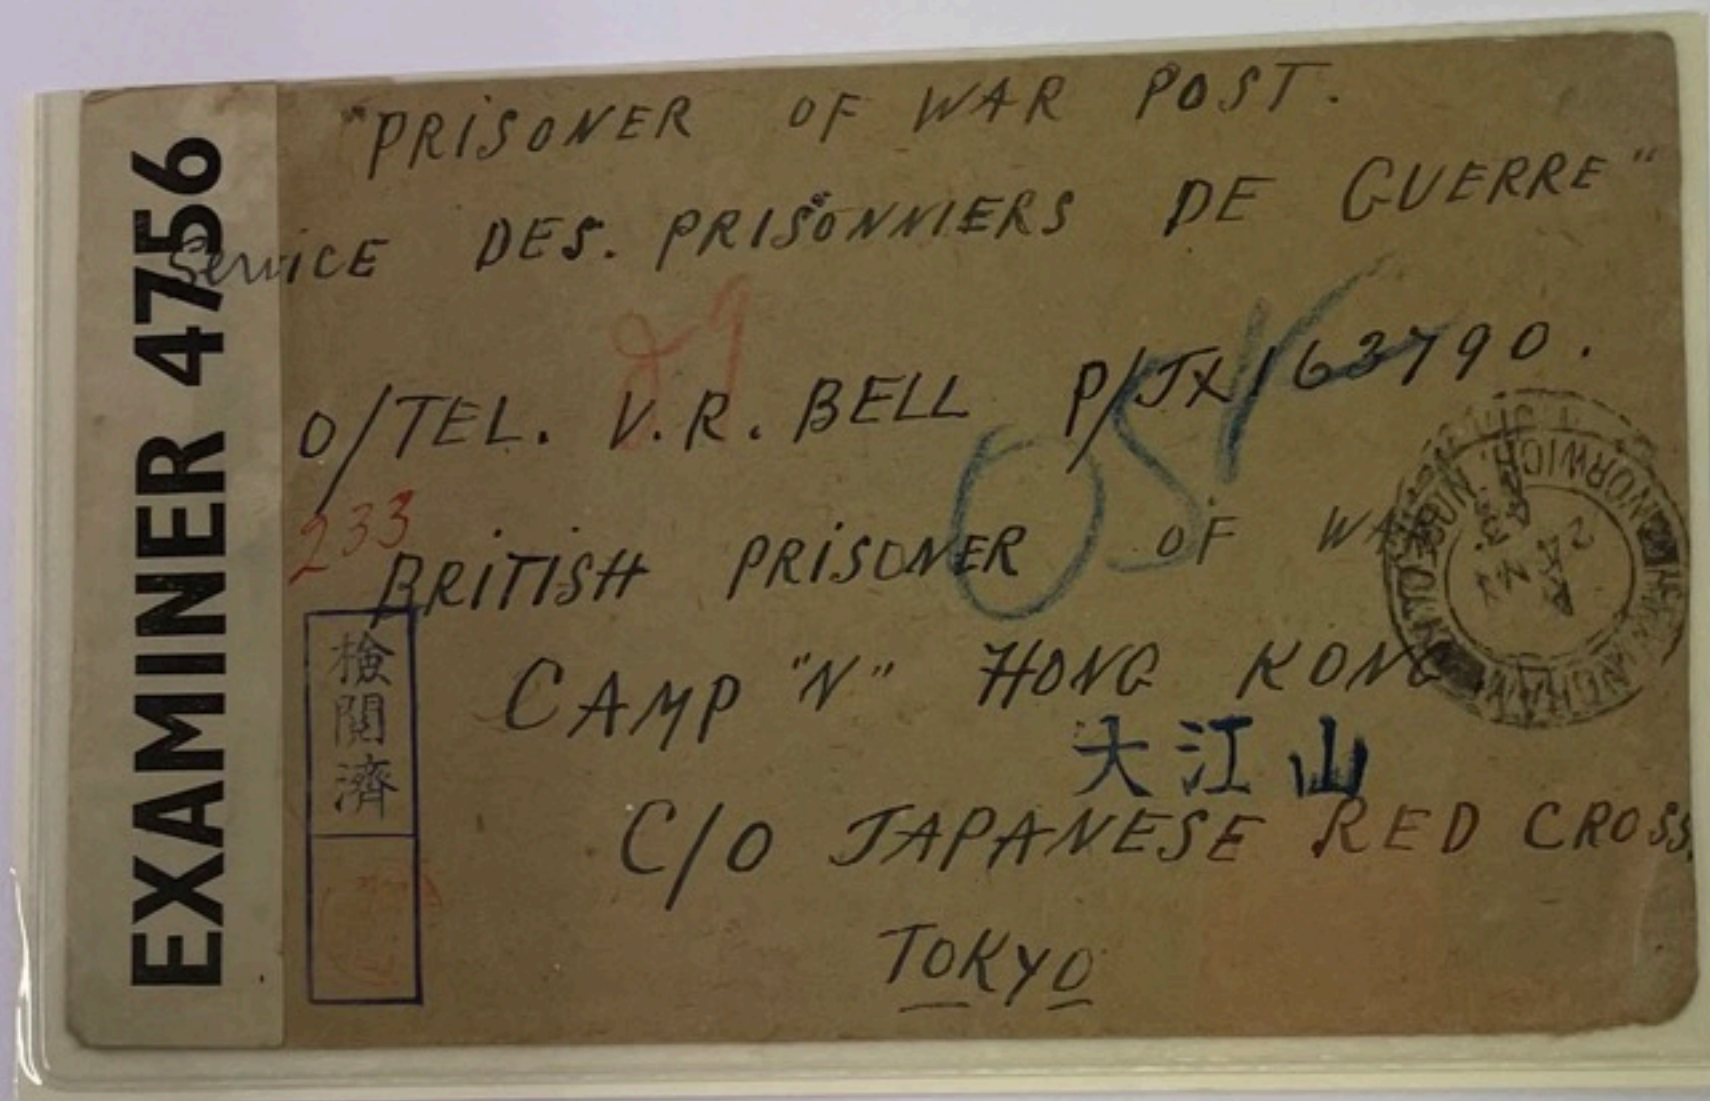 EXAMINER 4756
"PRISONER OF WAR POST.
SERVICE DES. PRISONNIERS DE GUERRE"
29
O/TEL. V.R. BELL P/JX163790.
233
BRITISH PRISONER OF WAR
CAMP "N" HONG KONG
大江山
C/O JAPANESE RED CROSS.
TOKYO
検閲済
NORWICH